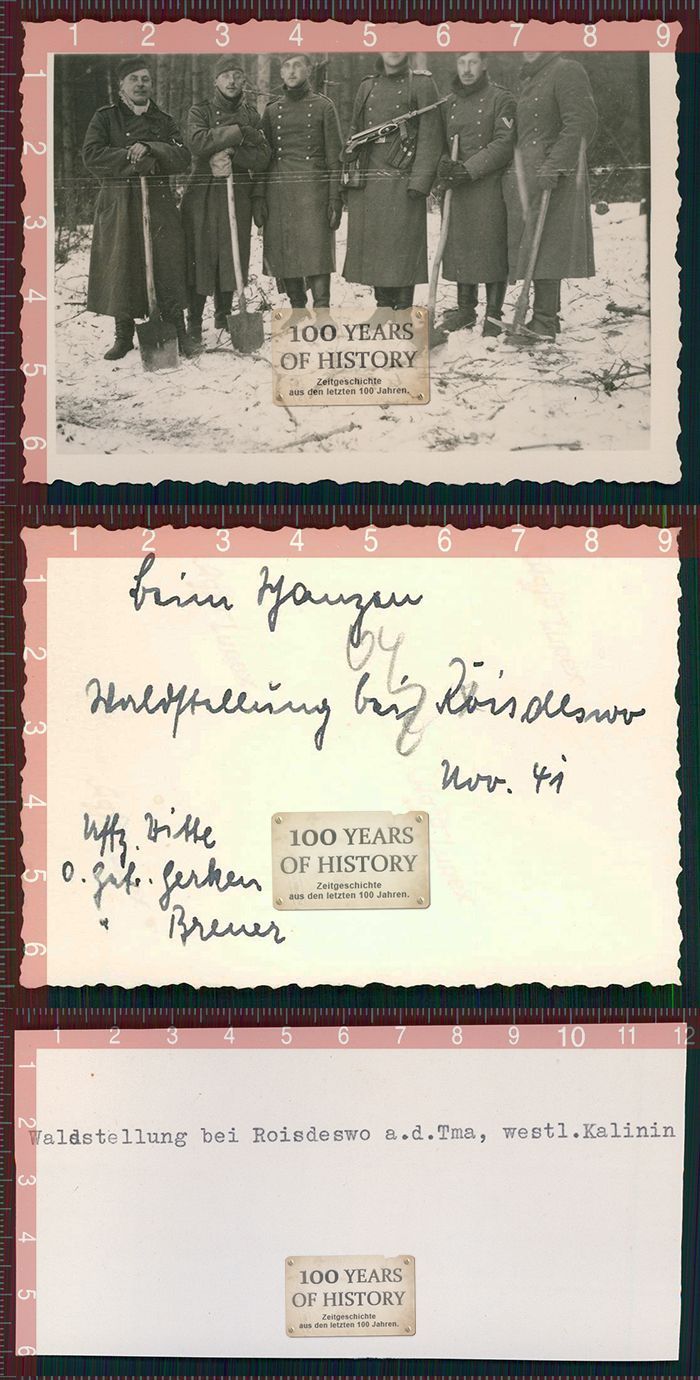 1 2 3 4 5 6 7 8 9
1
2
3
4
5
6
100 YEARS
OF HISTORY
Zeitgeschichte
aus den letzten 100 Jahren.
1 2 3 4 5 6 7 8 9
1
2
3
4
5
6
beim Schanzen
04
Waldstellung bei Roisdeswo
Nov. 41
Uffz. Witte
O. Gefr. Gerken
" Breuer
100 YEARS
OF HISTORY
Zeitgeschichte
aus den letzten 100 Jahren.
1 2 3 4 5 6 7 8 9 10 11 12
1
2
3
4
5
6
Waldstellung bei Roisdeswo a.d.Tma, westl.Kalinin
100 YEARS
OF HISTORY
Zeitgeschichte
aus den letzten 100 Jahren.